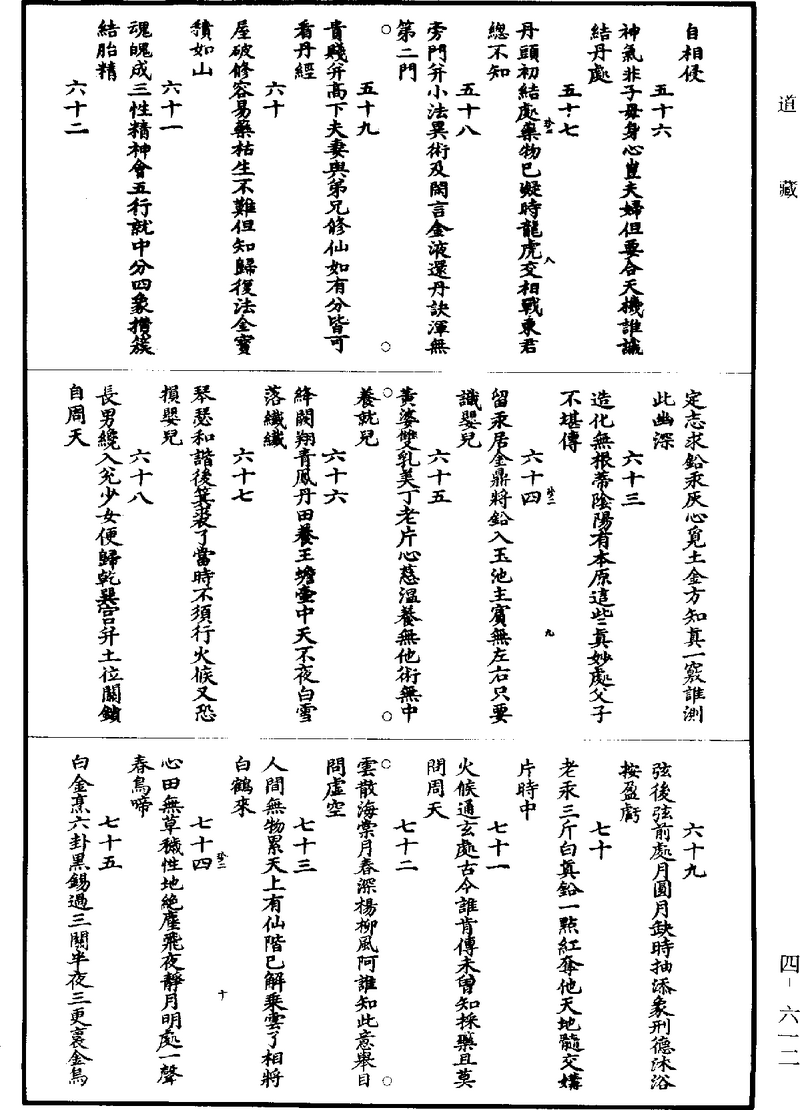 道藏
自相侵
五十六
神氣非子母身心豈夫婦但要合天機誰識
結丹處
五十七
丹頭初結處藥物已凝時龍虎交相戰東君
總不知
五十八
旁門并小法異術及閑言金液還丹訣渾無
第二門
五十九
貴賤并高下夫妻與弟兄修仙如有分皆可
看丹經
六十
屋破修容易藥枯生不難但知歸復法金寶
積如山
六十一
魂魄成三性精神會五行就中分四象攢簇
結胎精
六十二
定志求鉛汞灰心覓土金方知真一竅誰測
此幽深
六十三
造化無根蒂陰陽有本原這些真妙處父子
不堪傳
六十四
留汞居金鼎將鉛入玉池主賓無左右只要
識嬰兒
六十五
黃婆雙乳美丁老片心慈溫養無他術無中
養就兒
六十六
絳闕翔青鳳丹田養玉蟾壷中天不夜白雪
落纖纖
六十七
琴瑟和諧後箕裘了當時不須行火候又恐
損嬰兒
六十八
長男纔入兌少女便歸乾巽宮并土位關鎖
自周天
六十九
弦後弦前處月圓月缺時抽添象刑德沐浴
按盈虧
七十
老汞三斤白真鉛一點紅奪他天地髓交媾
片時中
七十一
火候通玄處古今誰肯傳未曾知採藥且莫
問周天
七十二
雲散海棠月春深楊柳風阿誰知此意舉目
問虛空
七十三
人間無物累天上有仙階已解乘雲了相將
白鶴來
七十四
心田無草穢性地絕塵飛夜靜月明處一聲
春鳥啼
七十五
白金烹六卦黑錫過三關半夜三更裏金烏
四-六一二